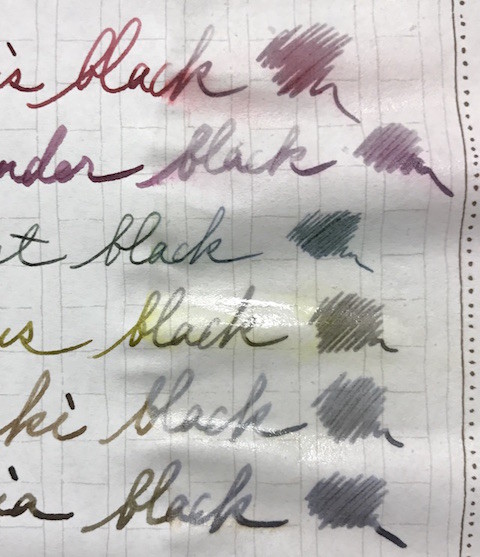 is black
nder black
t black
us black
ki black
ia black